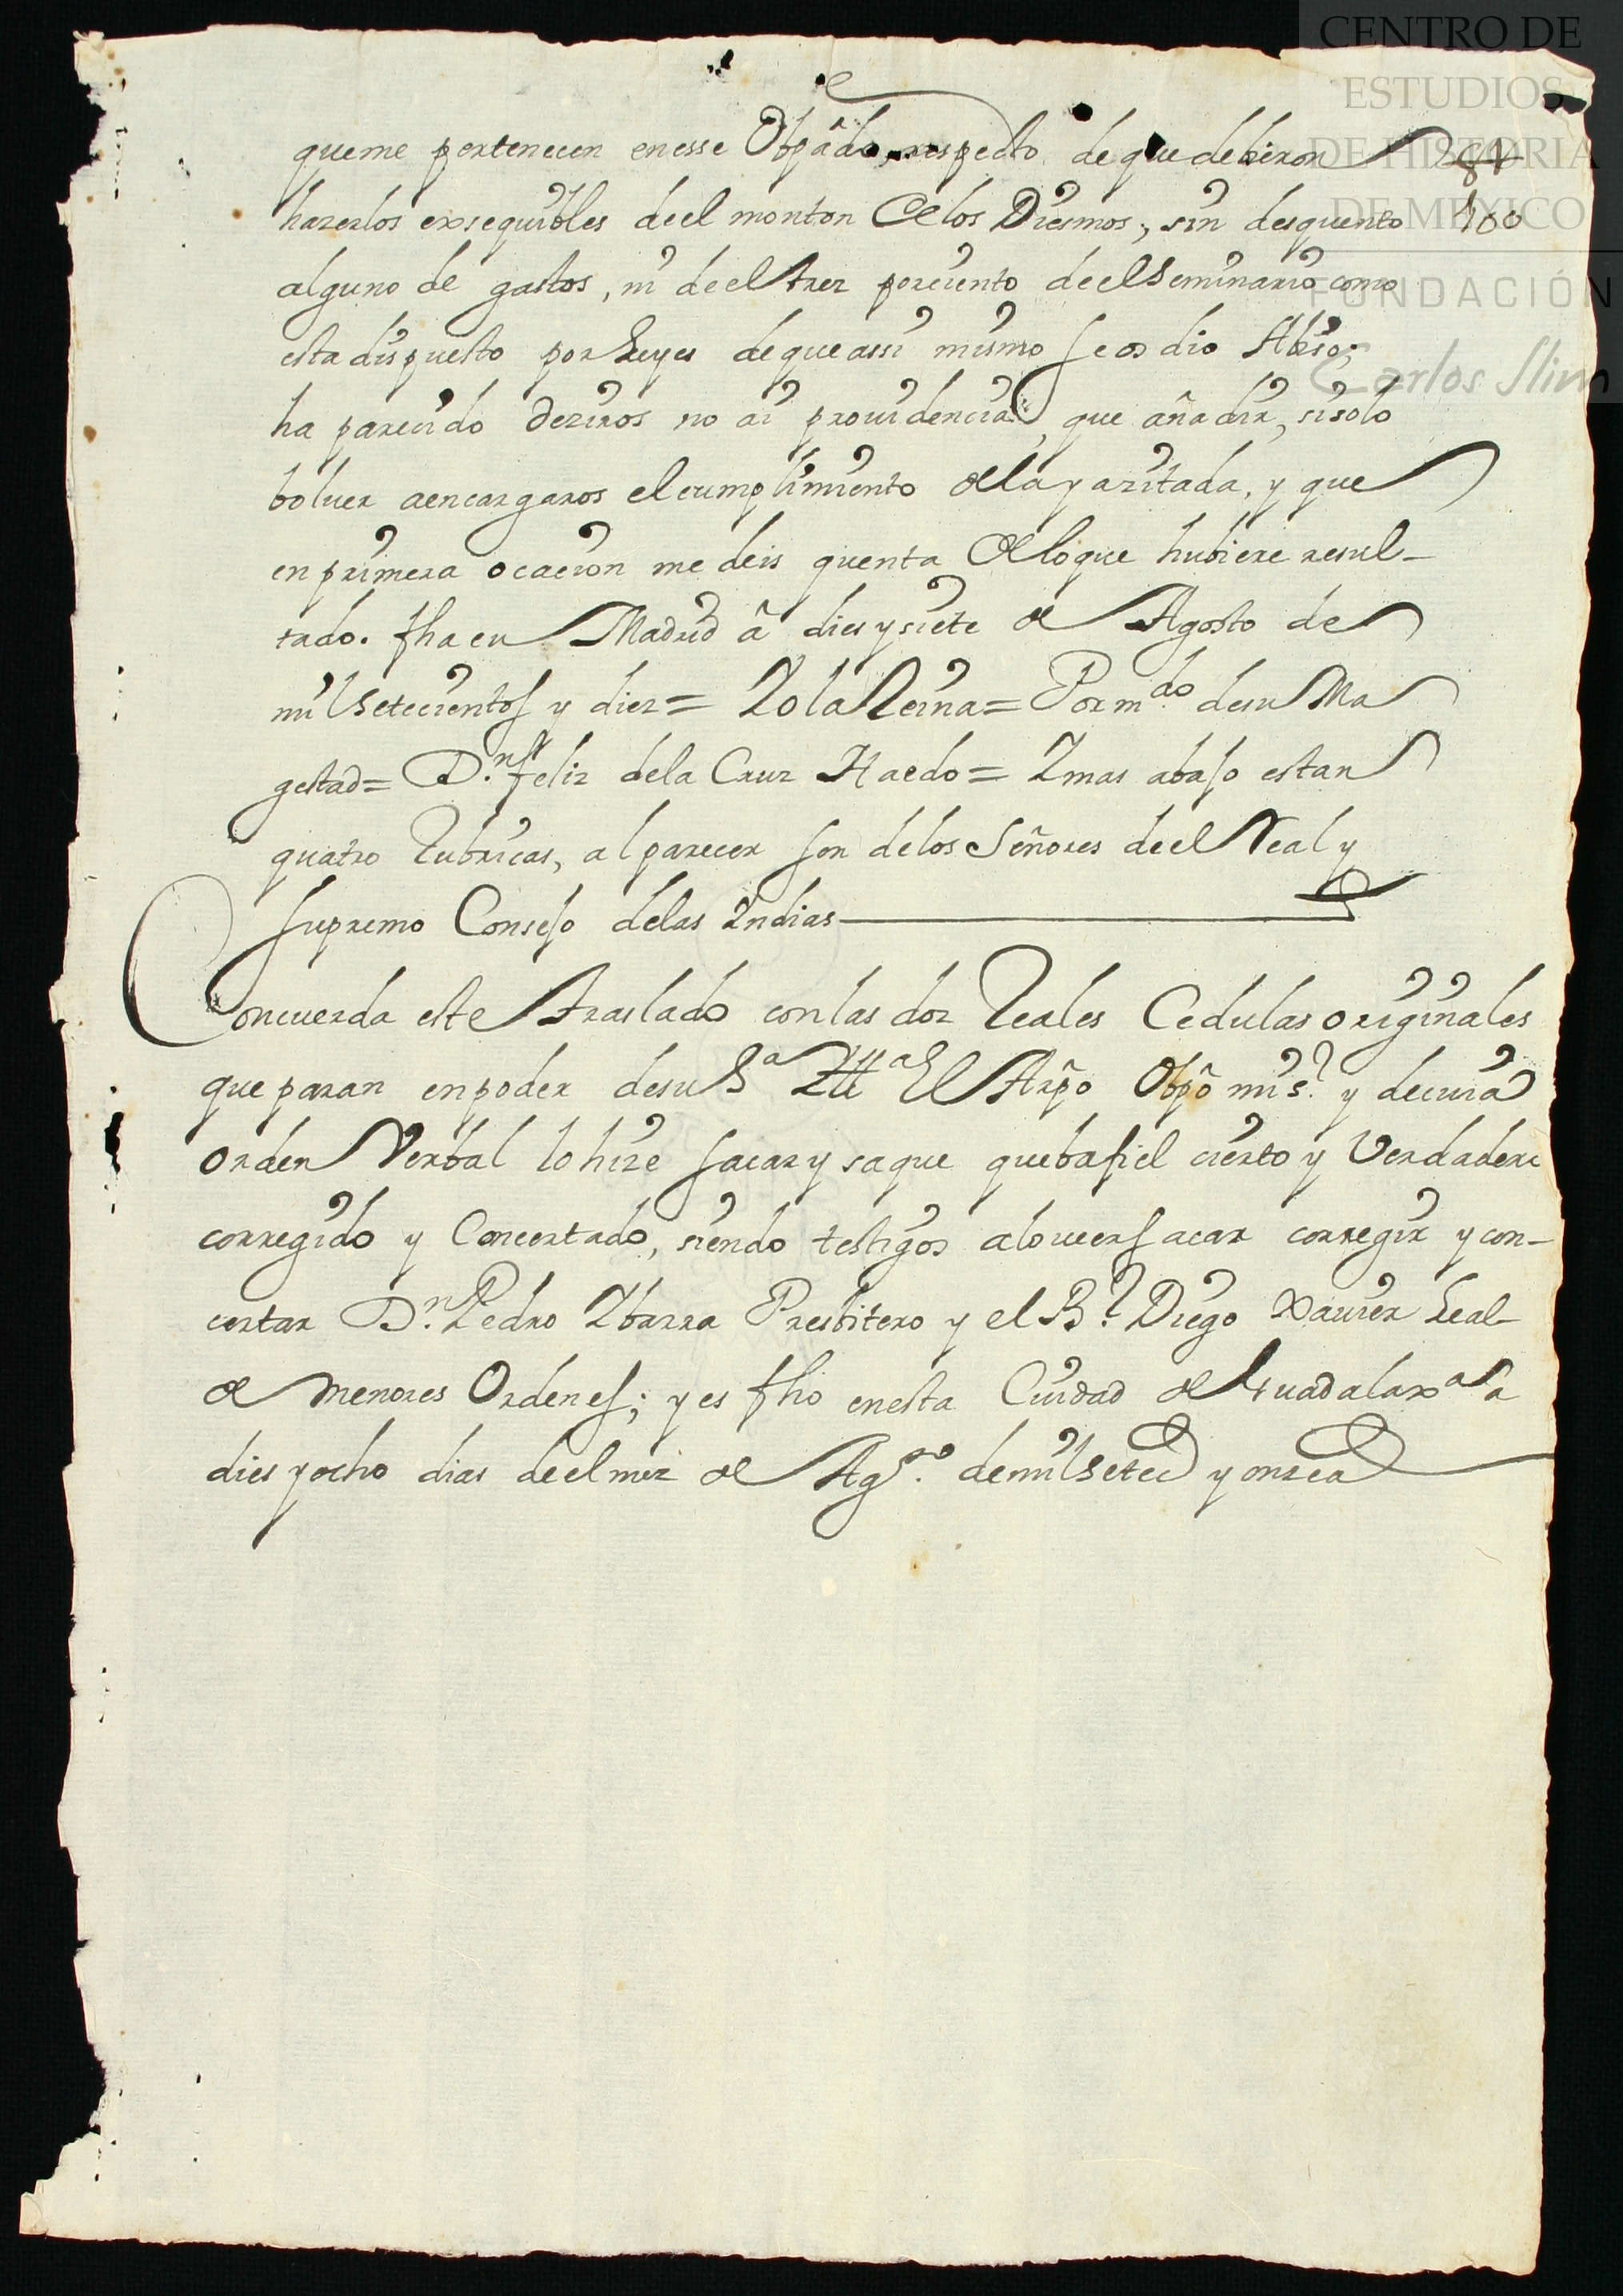 CENTRO DE
ESTUDIOS
DE HISTORIA
DE MÉXICO
FUNDACIÓN
Carlos Slim
100
que me pertenecen en esse Obpâdo, respecto de que debieron
hazerlos exsequibles de el monton de los Diesmos, sin desquento
alguno de gastos, ni de el trez porciento de el Seminario como
esta dispuesto por Leyes de que assi mismo se os dio Abiso;
ha parecido deziros no ai prouidencia, que añadir, si solo
boluer a encargaros el cumplimiento de la ya zitada, y que
en primera ocacion me deis quenta de lo que hubiere resul-
tado. fha en Madrid â dies y siete de Agosto de
mil Setecientos y diez = Yo la Reina = Por m.do de su Ma
gestad = D.n feliz de la Cruz Haedo = Y mas abajo estan
quatro Rubricas, al parecer son de los Señores de el Real y
supremo Consejo de las Indias
Concuerda este traslado con las doz Reales Cedulas originales
que paran en poder de su S.a Ill.a El Arpo Obpo mi s.r y de cuia
orden Verbal lo hize sacar y saque que ba fiel cierto y Verdadero
corregido y Concertado, siendo testigos a lo uer sacar corregir y con-
certar D.n Pedro Ybarra Presbitero y el B.r Diego Xauier Leal
de menores Ordenes; y es fho en esta Ciudad de Guadalax.a a
dies y ocho dias de el mez de Ag.to de mil Setec y onze a